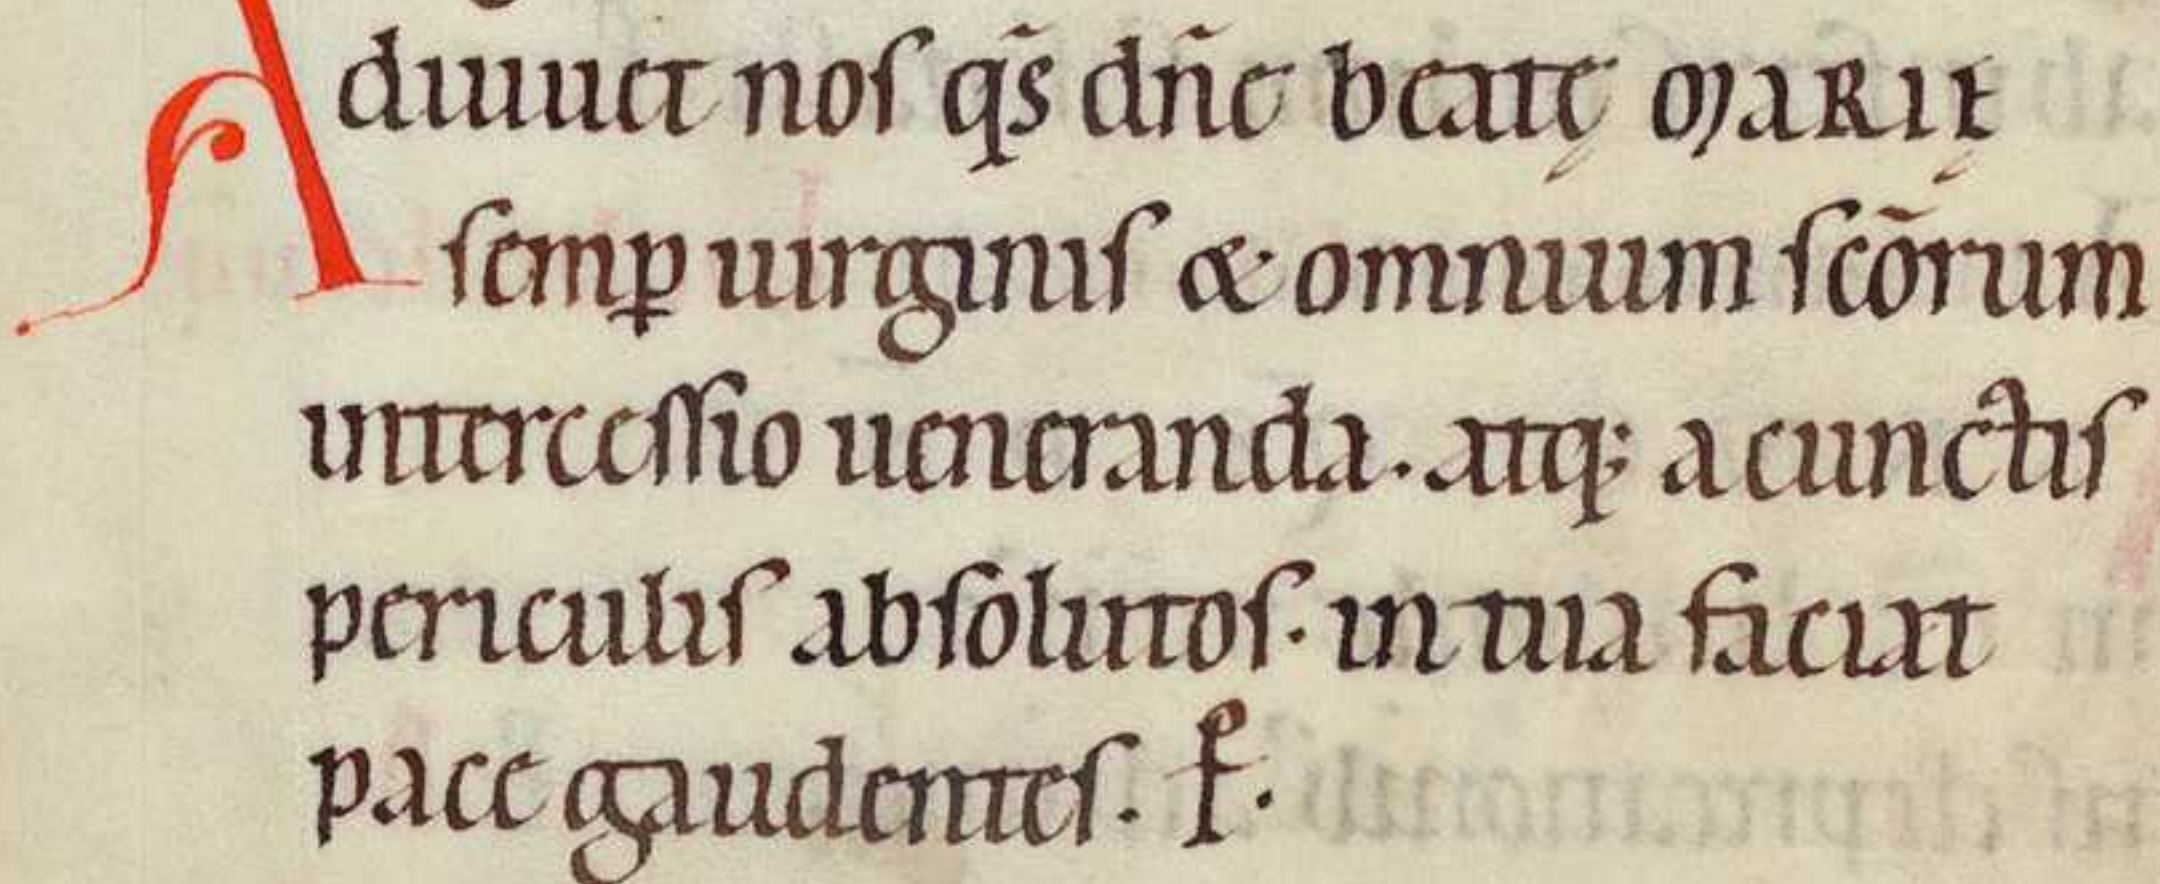 Adiuuet noſ q̄s dn̄e beatę MARIE
ſemꝑ uirginiſ & omnium ſcōrum
interceſſio ueneranda. atq; a cunctiſ
periculiſ abſolutoſ. in tua faciat
pace gaudenteſ.